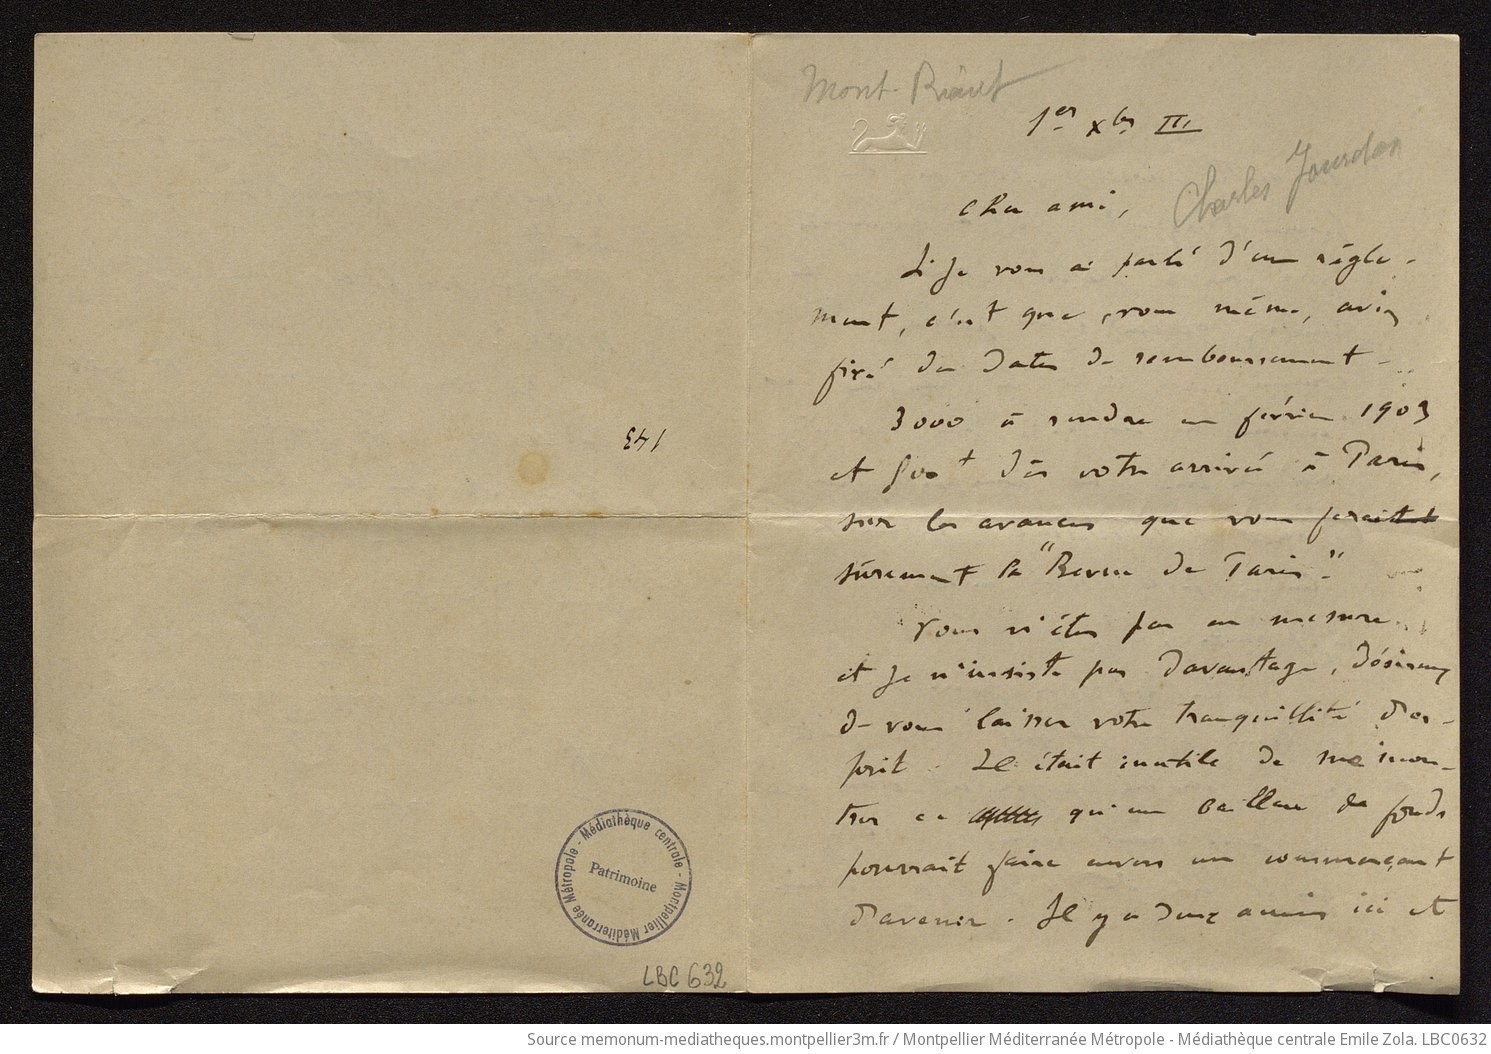 143
Médiathèque centrale - Montpellier Méditerranée Métropole -
Patrimoine
LBC 632
Mont-Riant
1er Xbre III
Charles Jourdan
Cher ami,
Si je vous ai parlé d'un règle-
ment, c'est que vous même, aviez
fixé des dates de remboursement -
3000 à rendre en février 1903
et dès votre arrivée à Paris,
sur les avances que vous ferait
sûrement la "Revue de Paris".
Vous n'êtes pas en mesure
et je n'insiste pas davantage, désireux
de vous laisser votre tranquillité d'es-
prit. Il était inutile de me mon-
trer ce qu'un bailleur de fonds
pourrait faire envers un commerçant
d'avenir. Il y a deux amis ici et
Source memonum-mediatheques.montpellier3m.fr / Montpellier Méditerranée Métropole - Médiathèque centrale Emile Zola. LBC0632